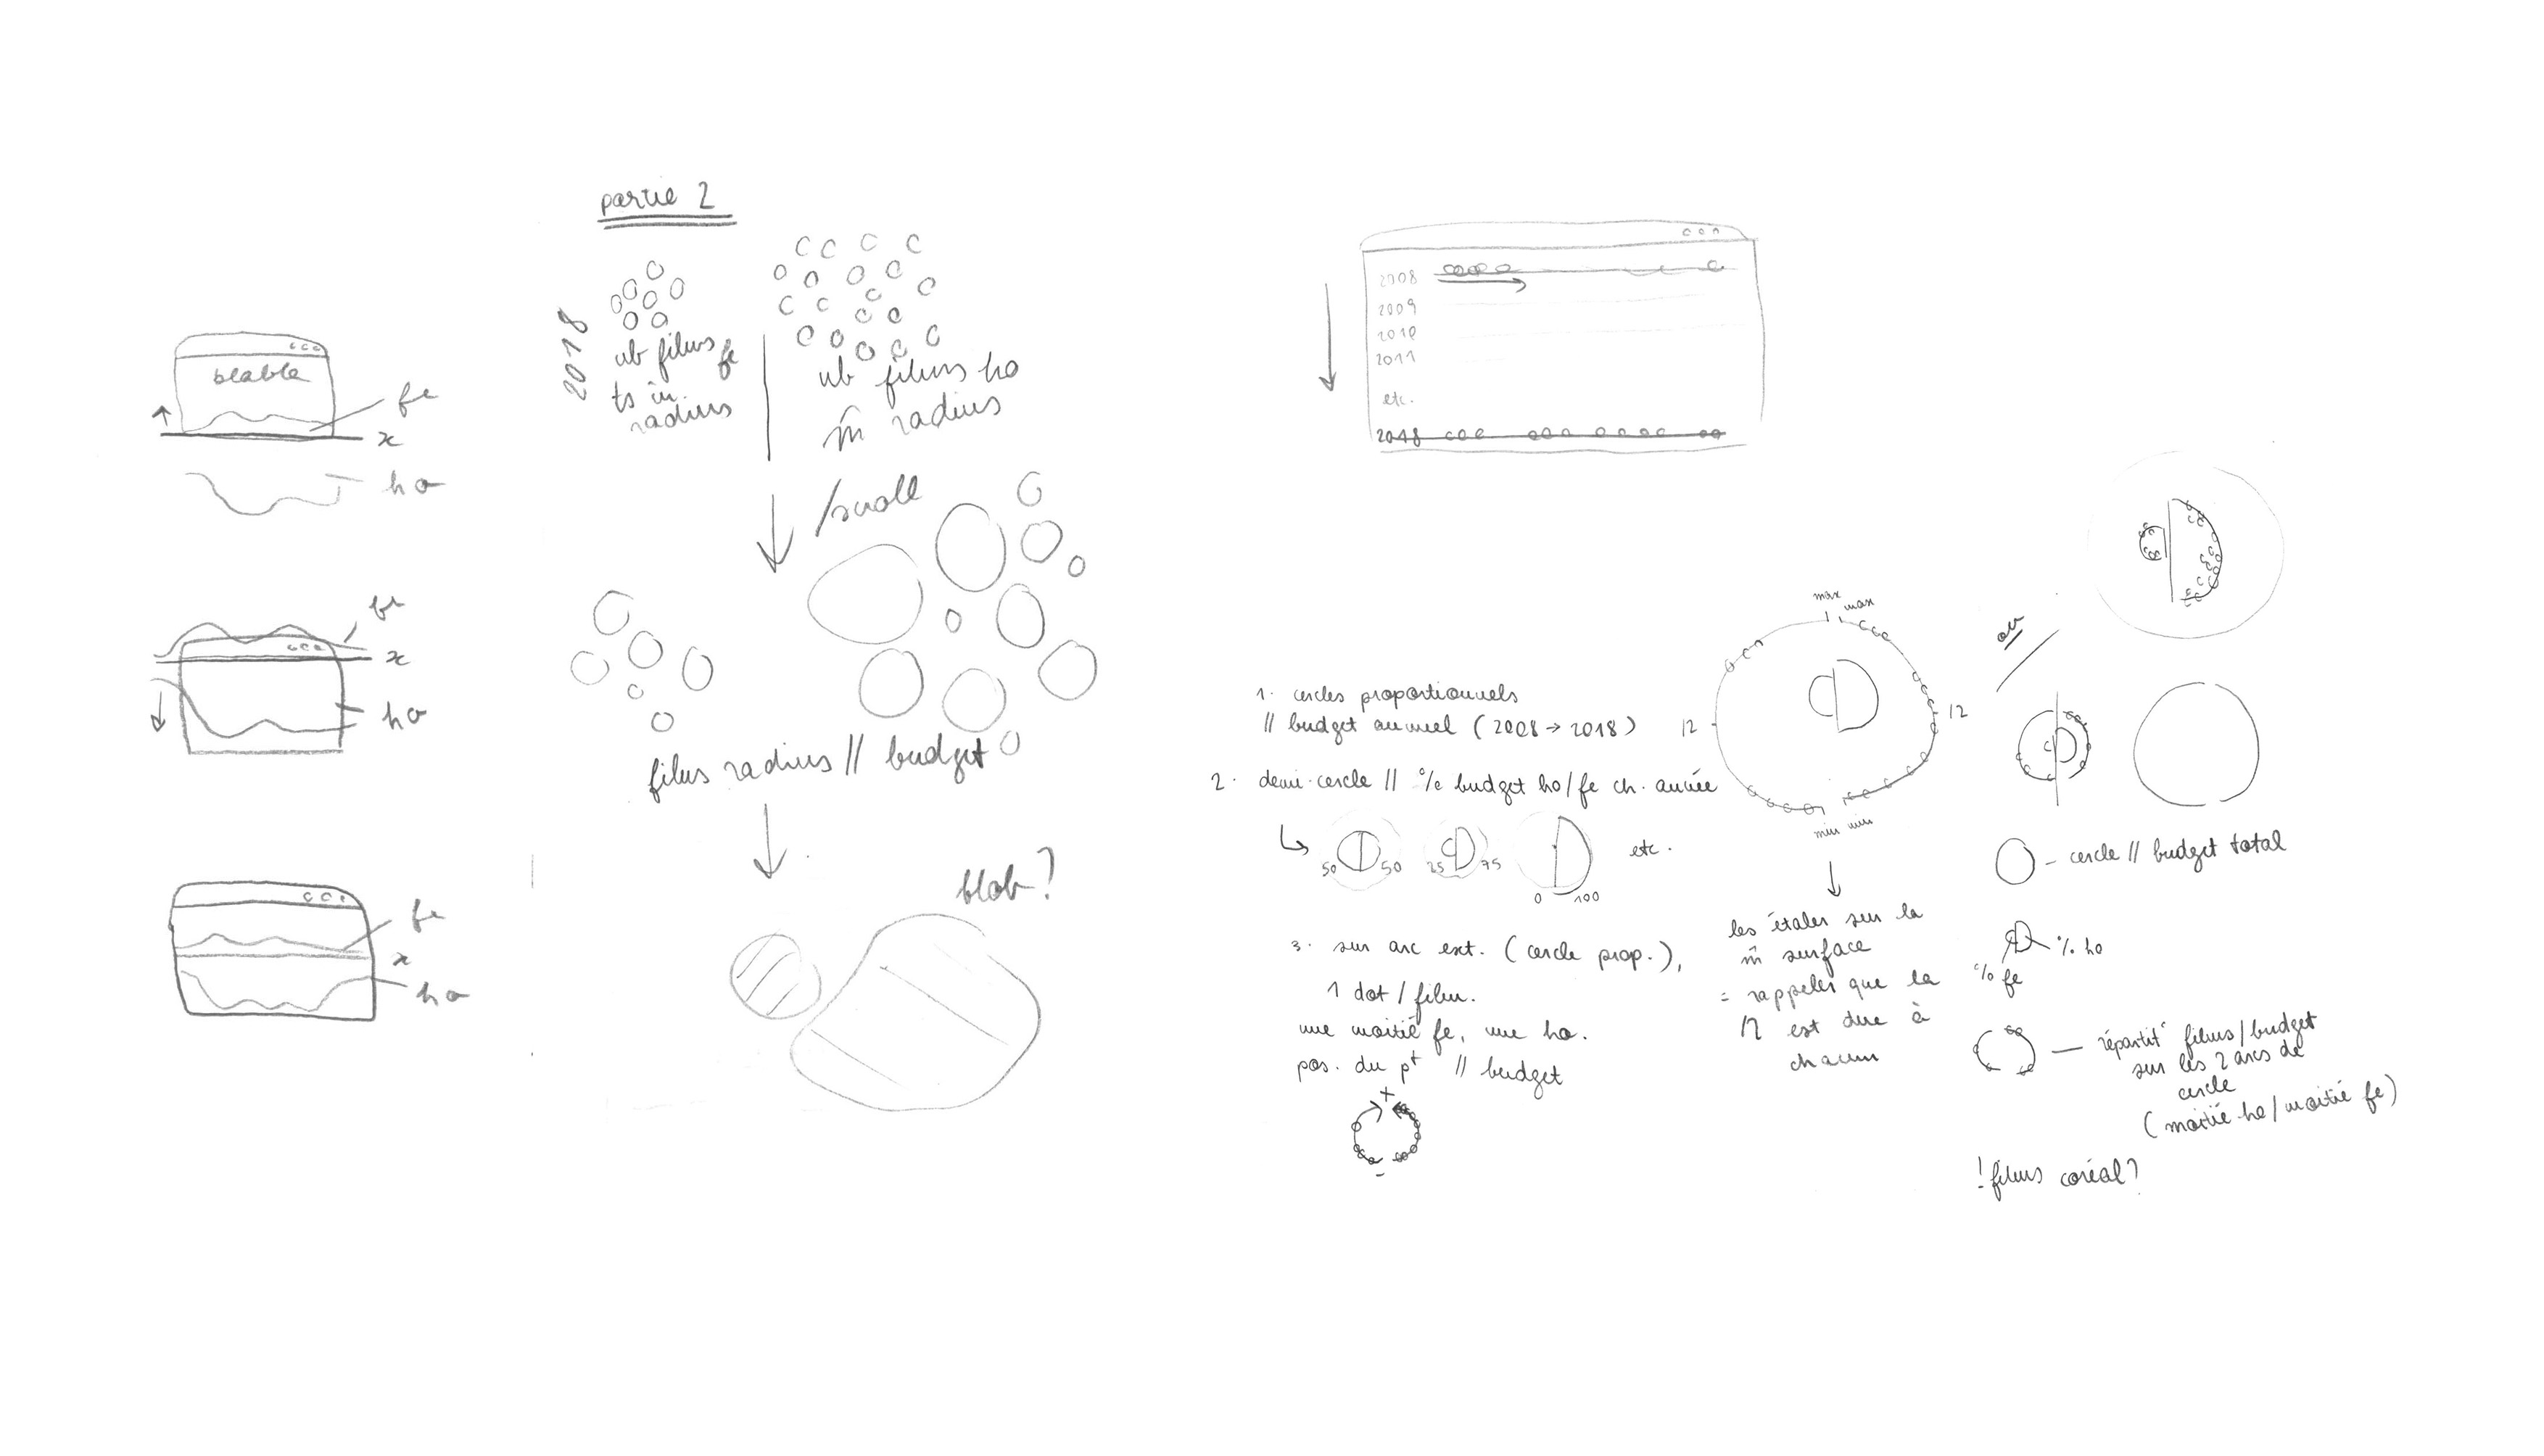 blabla
fe
x
ho
fe
x
ho
fe
x
ho
partie 2
2018
nb films fe
ts m̂
radius
nb films ho
m̂ radius
/scroll
films radius // budget
blob?
2008
2009
2010
2011
etc.
2018
1. cercles proportionnels
// budget annuel (2008 → 2018)
2. demi-cercle // % budget ho/fe ch. année
50 50
25 75
0 100
etc.
3. sur arc ext. (cercle prop.),
1 dot / film.
une moitié fe, une ho.
pos. du pt // budget
+
-
max max
1/2
1/2
min min
les étaler sur la
m̂ surface
= rappeler que la
1/2 est due à
chacun
ou
cercle // budget total
% ho
% fe
répartit° films/budget
sur les 2 arcs de
cercle
(moitié ho/moitié fe)
! films coréal?